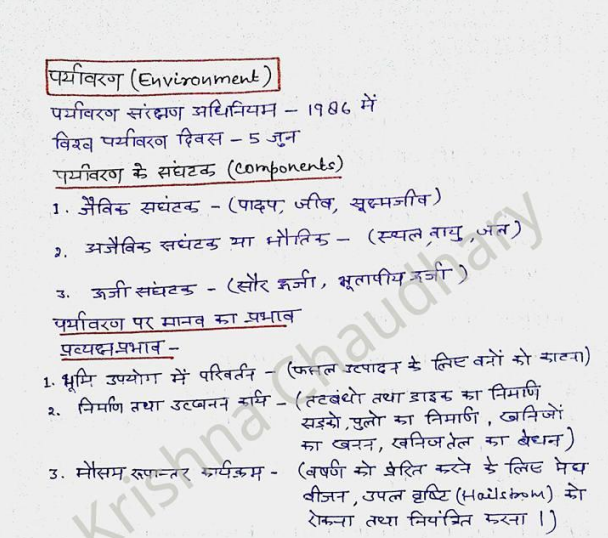 पर्यावरण (Environment)
पर्यावरण संरक्षण अधिनियम - 1986 में
विश्व पर्यावरण दिवस - 5 जुन
पर्यावरण के संघटक (Components)
1. जैविक सघंटक - (पादप, जीव, सूक्ष्मजीव)
2. अजैविक सघंटक या भौतिक - (स्थल, वायु, जल)
3. ऊर्जा संघटक - (सौर ऊर्जा, भूतापीय ऊर्जा)
पर्यावरण पर मानव का प्रभाव
प्रत्यक्ष प्रभाव -
1. भूमि उपयोग में परिवर्तन - (फसल उत्पादन के लिए वनों को काटना)
2. निर्माण तथा उत्खनन कार्य - (तटबंधो तथा डाइक का निर्माण
सड़को, पुलो का निर्माण, खनिजों
का खनन, खनिज तेल का बेधन)
3. मौसम रूपान्तर कार्यक्रम - (वर्षण को प्रेरित करने के लिए मेघ
बीजन, उपल वृष्टि (Hailstrom) को
रोकना तथा नियंत्रित करना।)
Krishna Chaudhary